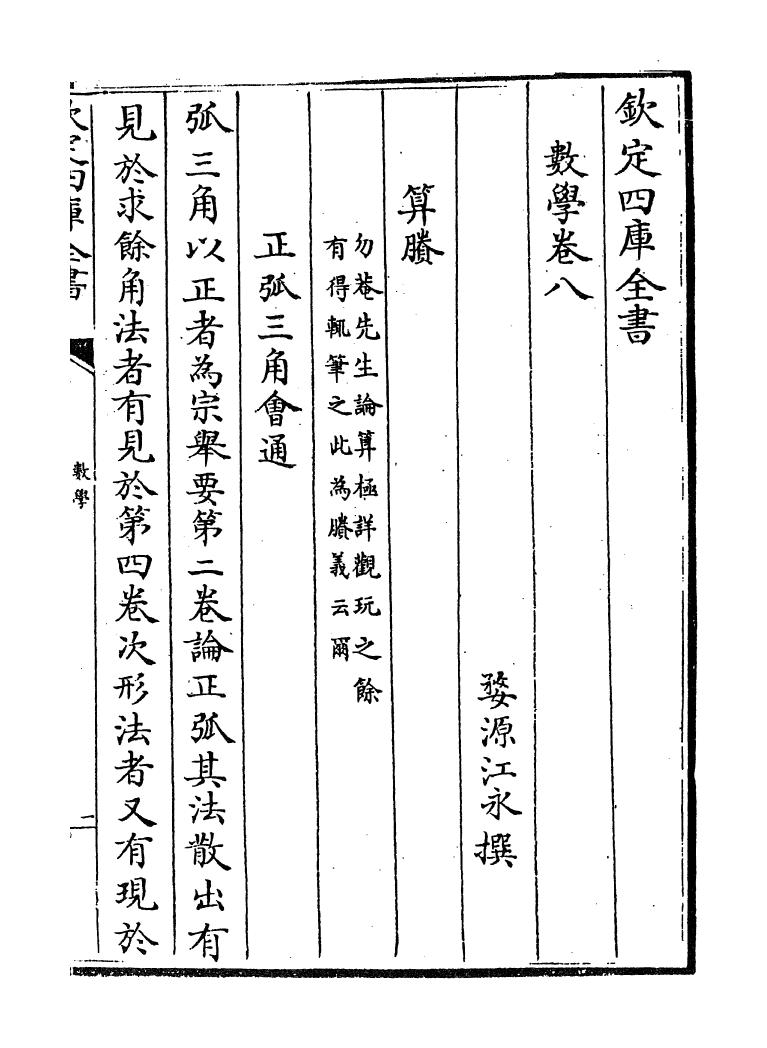 欽定四庫全書
數學卷八
婺源江永撰
算賸
勿菴先生論算極詳觀玩之餘
有得輒筆之此為賸義云爾
正弧三角會通
弧三角以正者為宗舉要第二卷論正弧其法散出有
見於求餘角法者有見於第四卷次形法者又有現於
欽定四庫全書
數學
二